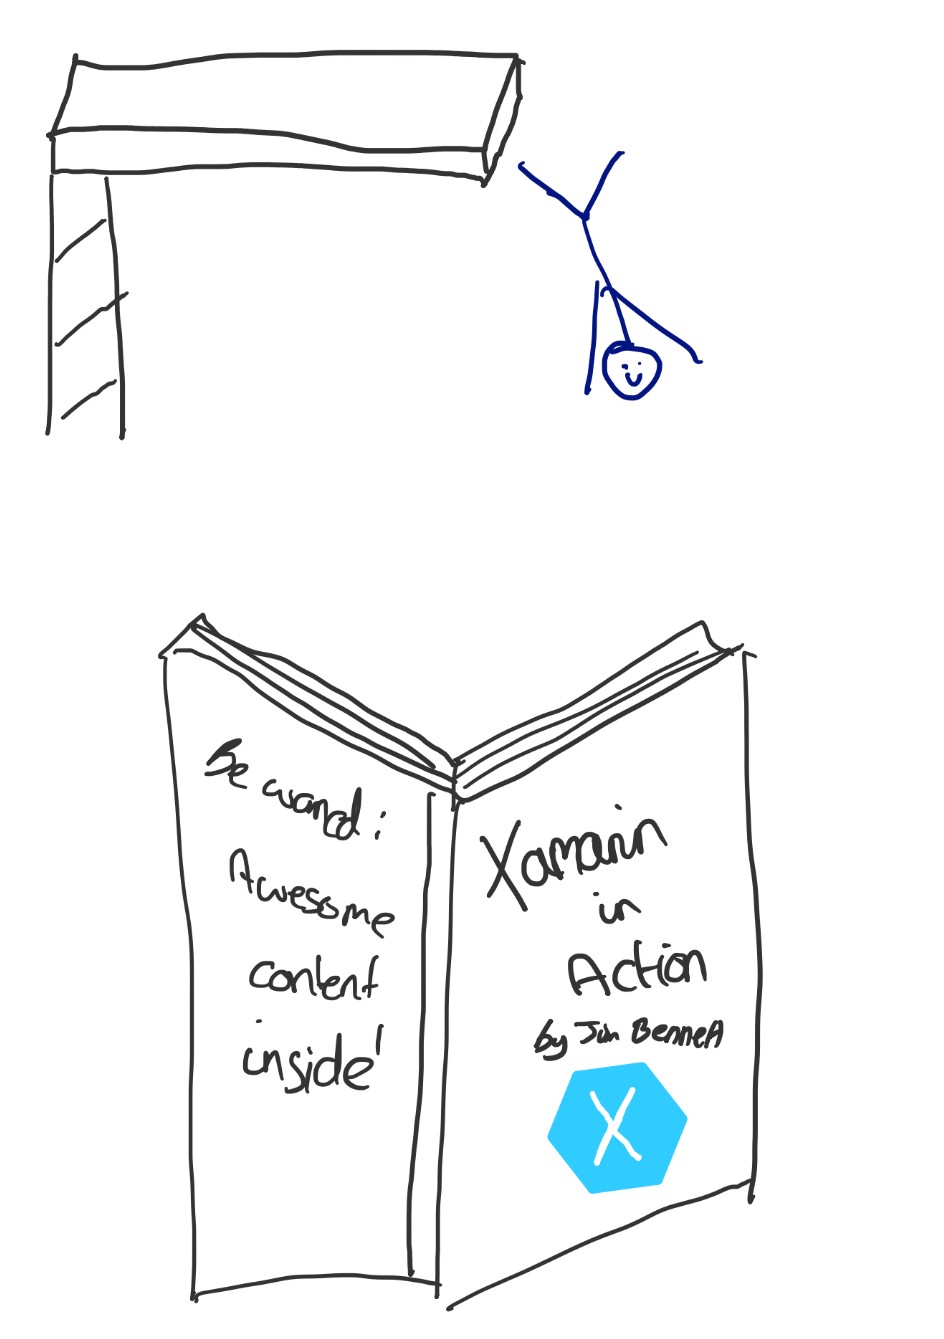 Be warned:
Awesome
content
inside!
Xamarin
in
Action
by Jim Bennett
X